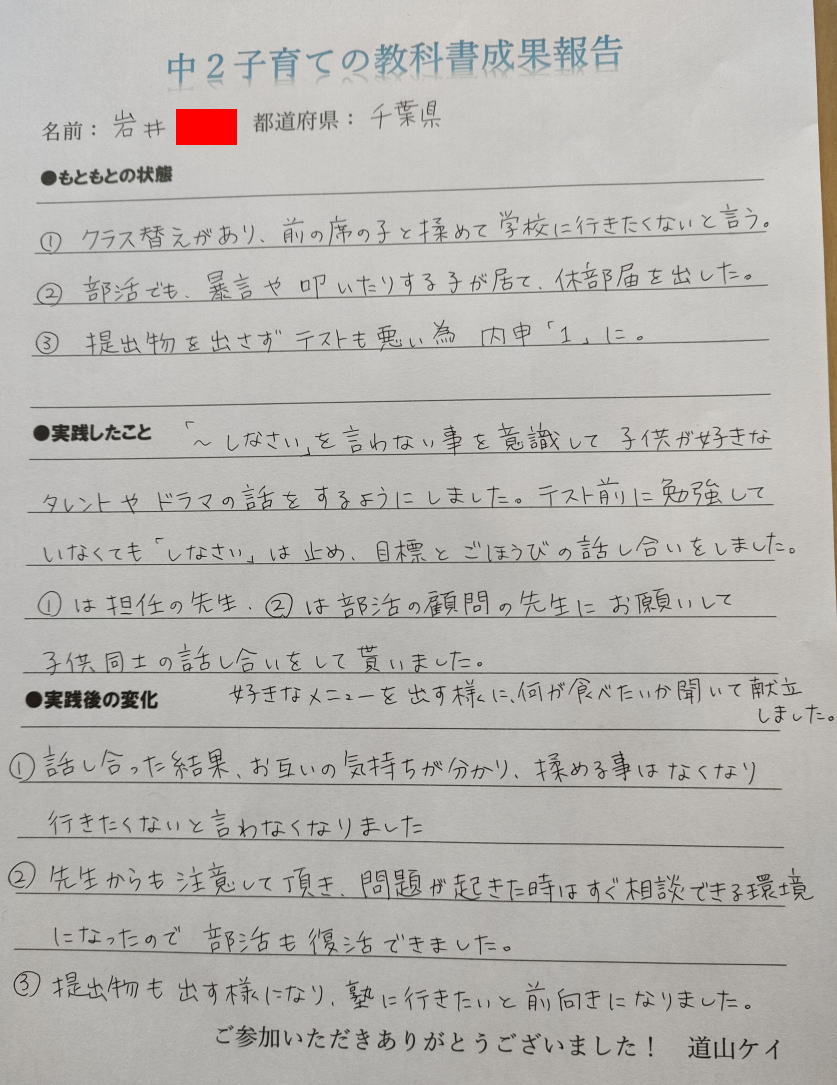 中２子育ての教科書成果報告
名前： 岩井 都道府県： 千葉県
●もともとの状態
① クラス替えがあり、前の席の子と揉めて学校に行きたくないと言う。
② 部活でも、暴言や叩いたりする子が居て、休部届を出した。
③ 提出物を出さずテストも悪い為 内申「1」に。
●実践したこと 「～しなさい」を言わない事を意識して子供が好きな
タレントやドラマの話をするようにしました。テスト前に勉強して
いなくても「しなさい」は止め、目標とごほうびの話し合いをしました。
①は担任の先生、②は部活の顧問の先生にお願いして
子供同士の話し合いをして貰いました。
●実践後の変化 好きなメニューを出す様に、何が食べたいか聞いて献立
しました。
① 話し合った結果、お互いの気持ちが分かり、揉める事はなくなり
行きたくないと言わなくなりました
② 先生からも注意して頂き、問題が起きた時はすぐ相談できる環境
になったので 部活も復活できました。
③ 提出物も出す様になり、塾に行きたいと前向きになりました。
ご参加いただきありがとうございました！ 道山ケイ